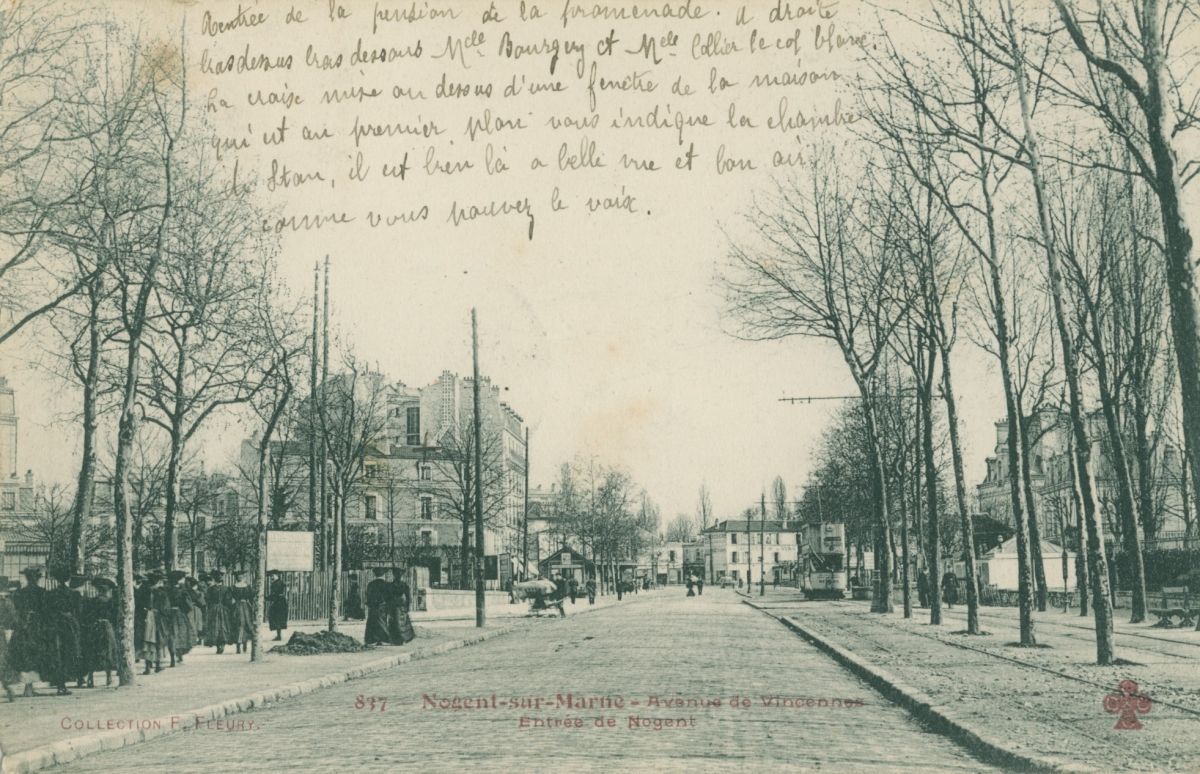 Rentrée de la pension de la promenade. A droite
bras dessus bras dessous Melle Bourguy et Melle Collier le col blanc.
La croix mise au dessus d'une fenêtre de la maison
qui est au premier plan vous indique la chambre
de Stan, il est bien là a belle vue et bon air
comme vous pouvez le voix.
837 - Nogent-sur-Marne - Avenue de Vincennes
Entrée de Nogent
COLLECTION F. FLEURY.